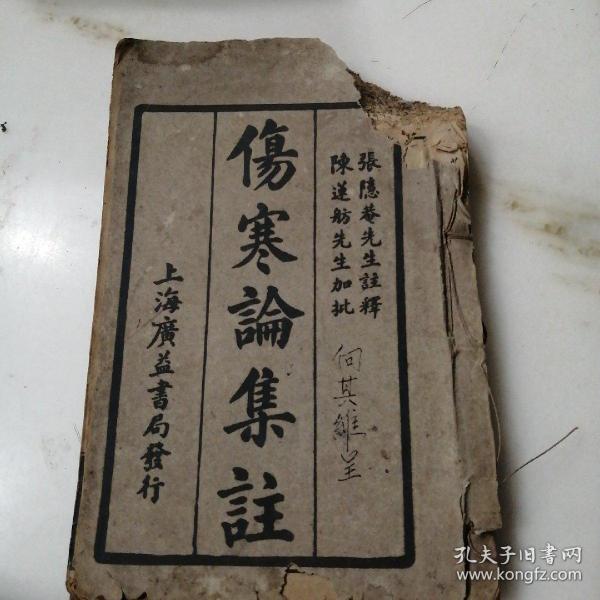 張隱菴先生註釋
陳蓮舫先生加批
傷寒論集註
上海廣益書局發行
何其維
孔夫子旧书网
www.kongfz.com